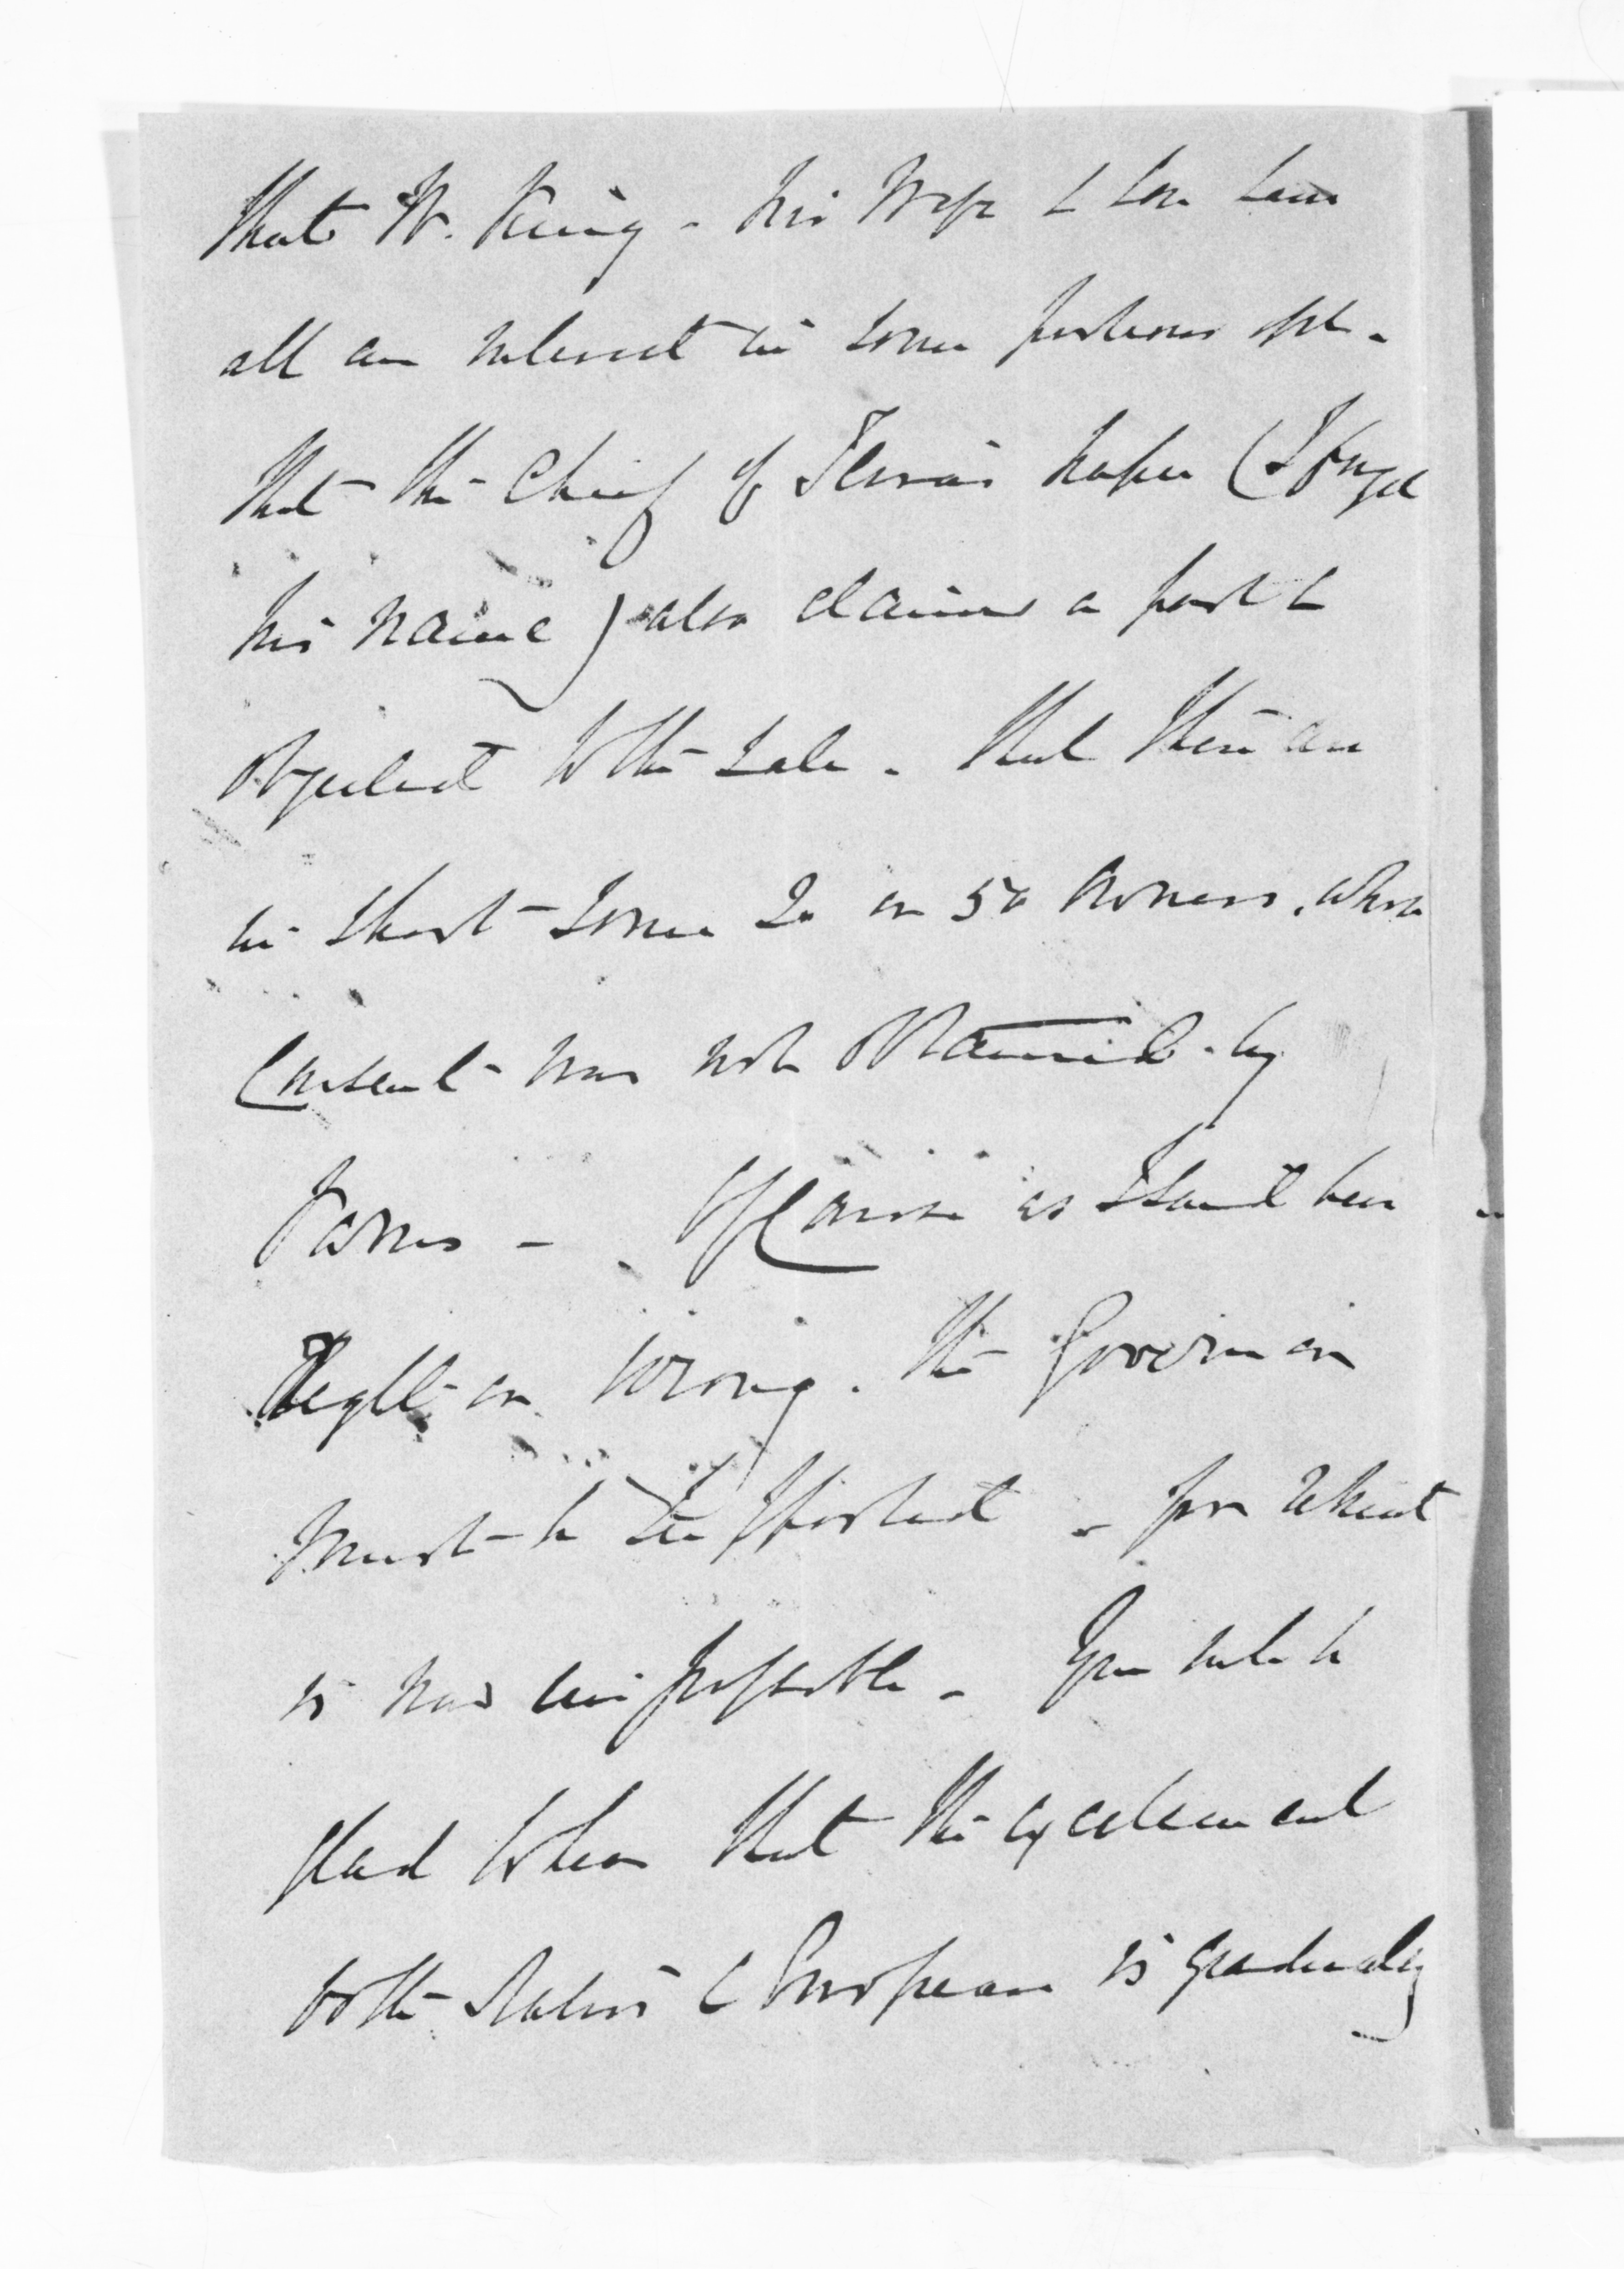 that W. King - his Wife & Son have
all an interest in some portions of it -
that the Chief of Tewai (I forget
his name) also claims a part &
objected to the sale - that there are
in short some 20 or 50 owners, whose
consent was not obtained by
Of Course as I said
Right or Wrong. the Governor
must be supported - for retreat
is now impossible - You will be
glad to hear that the excitement
both Native & European is gradually